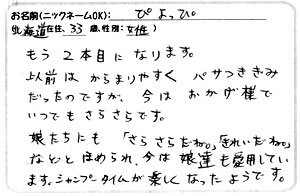 お名前(ニックネームOK): ぴよっぴ
(北海道在住、33歳、性別：女性)
もう2本目になります。
以前はからまりやすくパサつきぎみ
だったのですが、今はおかげ様で
いつでもさらさらです。
娘たちにも「さらさらだね。」「きれいだね。」
などとほめられ、今は娘達も愛用してい
ます。シャンプータイムが楽しくなったようです。